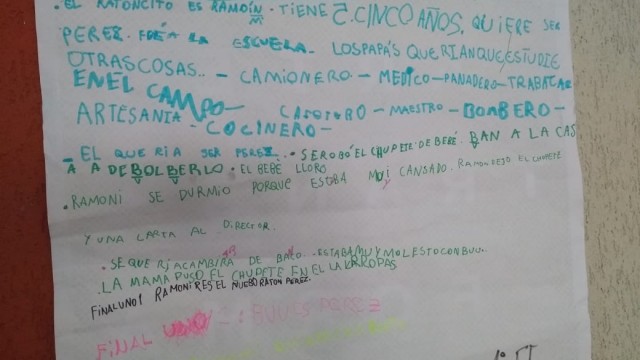 .EL RATONCITO ES RAMOÍN. TIENE 5. CINCO AÑOS, QUIERE SER
PEREZ. FUÉ A LA ESCUELA. LOSPAPÁS QUERIANQUEESTUDIE
OTRASCOSAS.. - CAMIONERO - MEDICO - PANADERO - TRABAJAR
EN EL CAMPO -
ARTESANIA - COCINERO - MAESTRO - BOMBERO -
- EL QUERIA SER PEREZ.. . SEROBÓ EL CHUPETE DE BEBÉ. BAN A LA CAS
A A DEBOLBERLO . EL BEBÉ LLORO
.RAMONI SE DURMIO PORQUE ESTABA MUY CANSADO. RAMONDEJO EL CHUPETE
Y UNA CARTA AL DIRECTOR.
.SEQUERIACAMBIRA DE ESTABAMUYMOLESTOCONBUU..
.LA MAMA PUSO EL CHUPETE EN EL LA ROPAS
FINALUNO! RAMONIRES EL NUEBORATON PEREZ.
FINAL